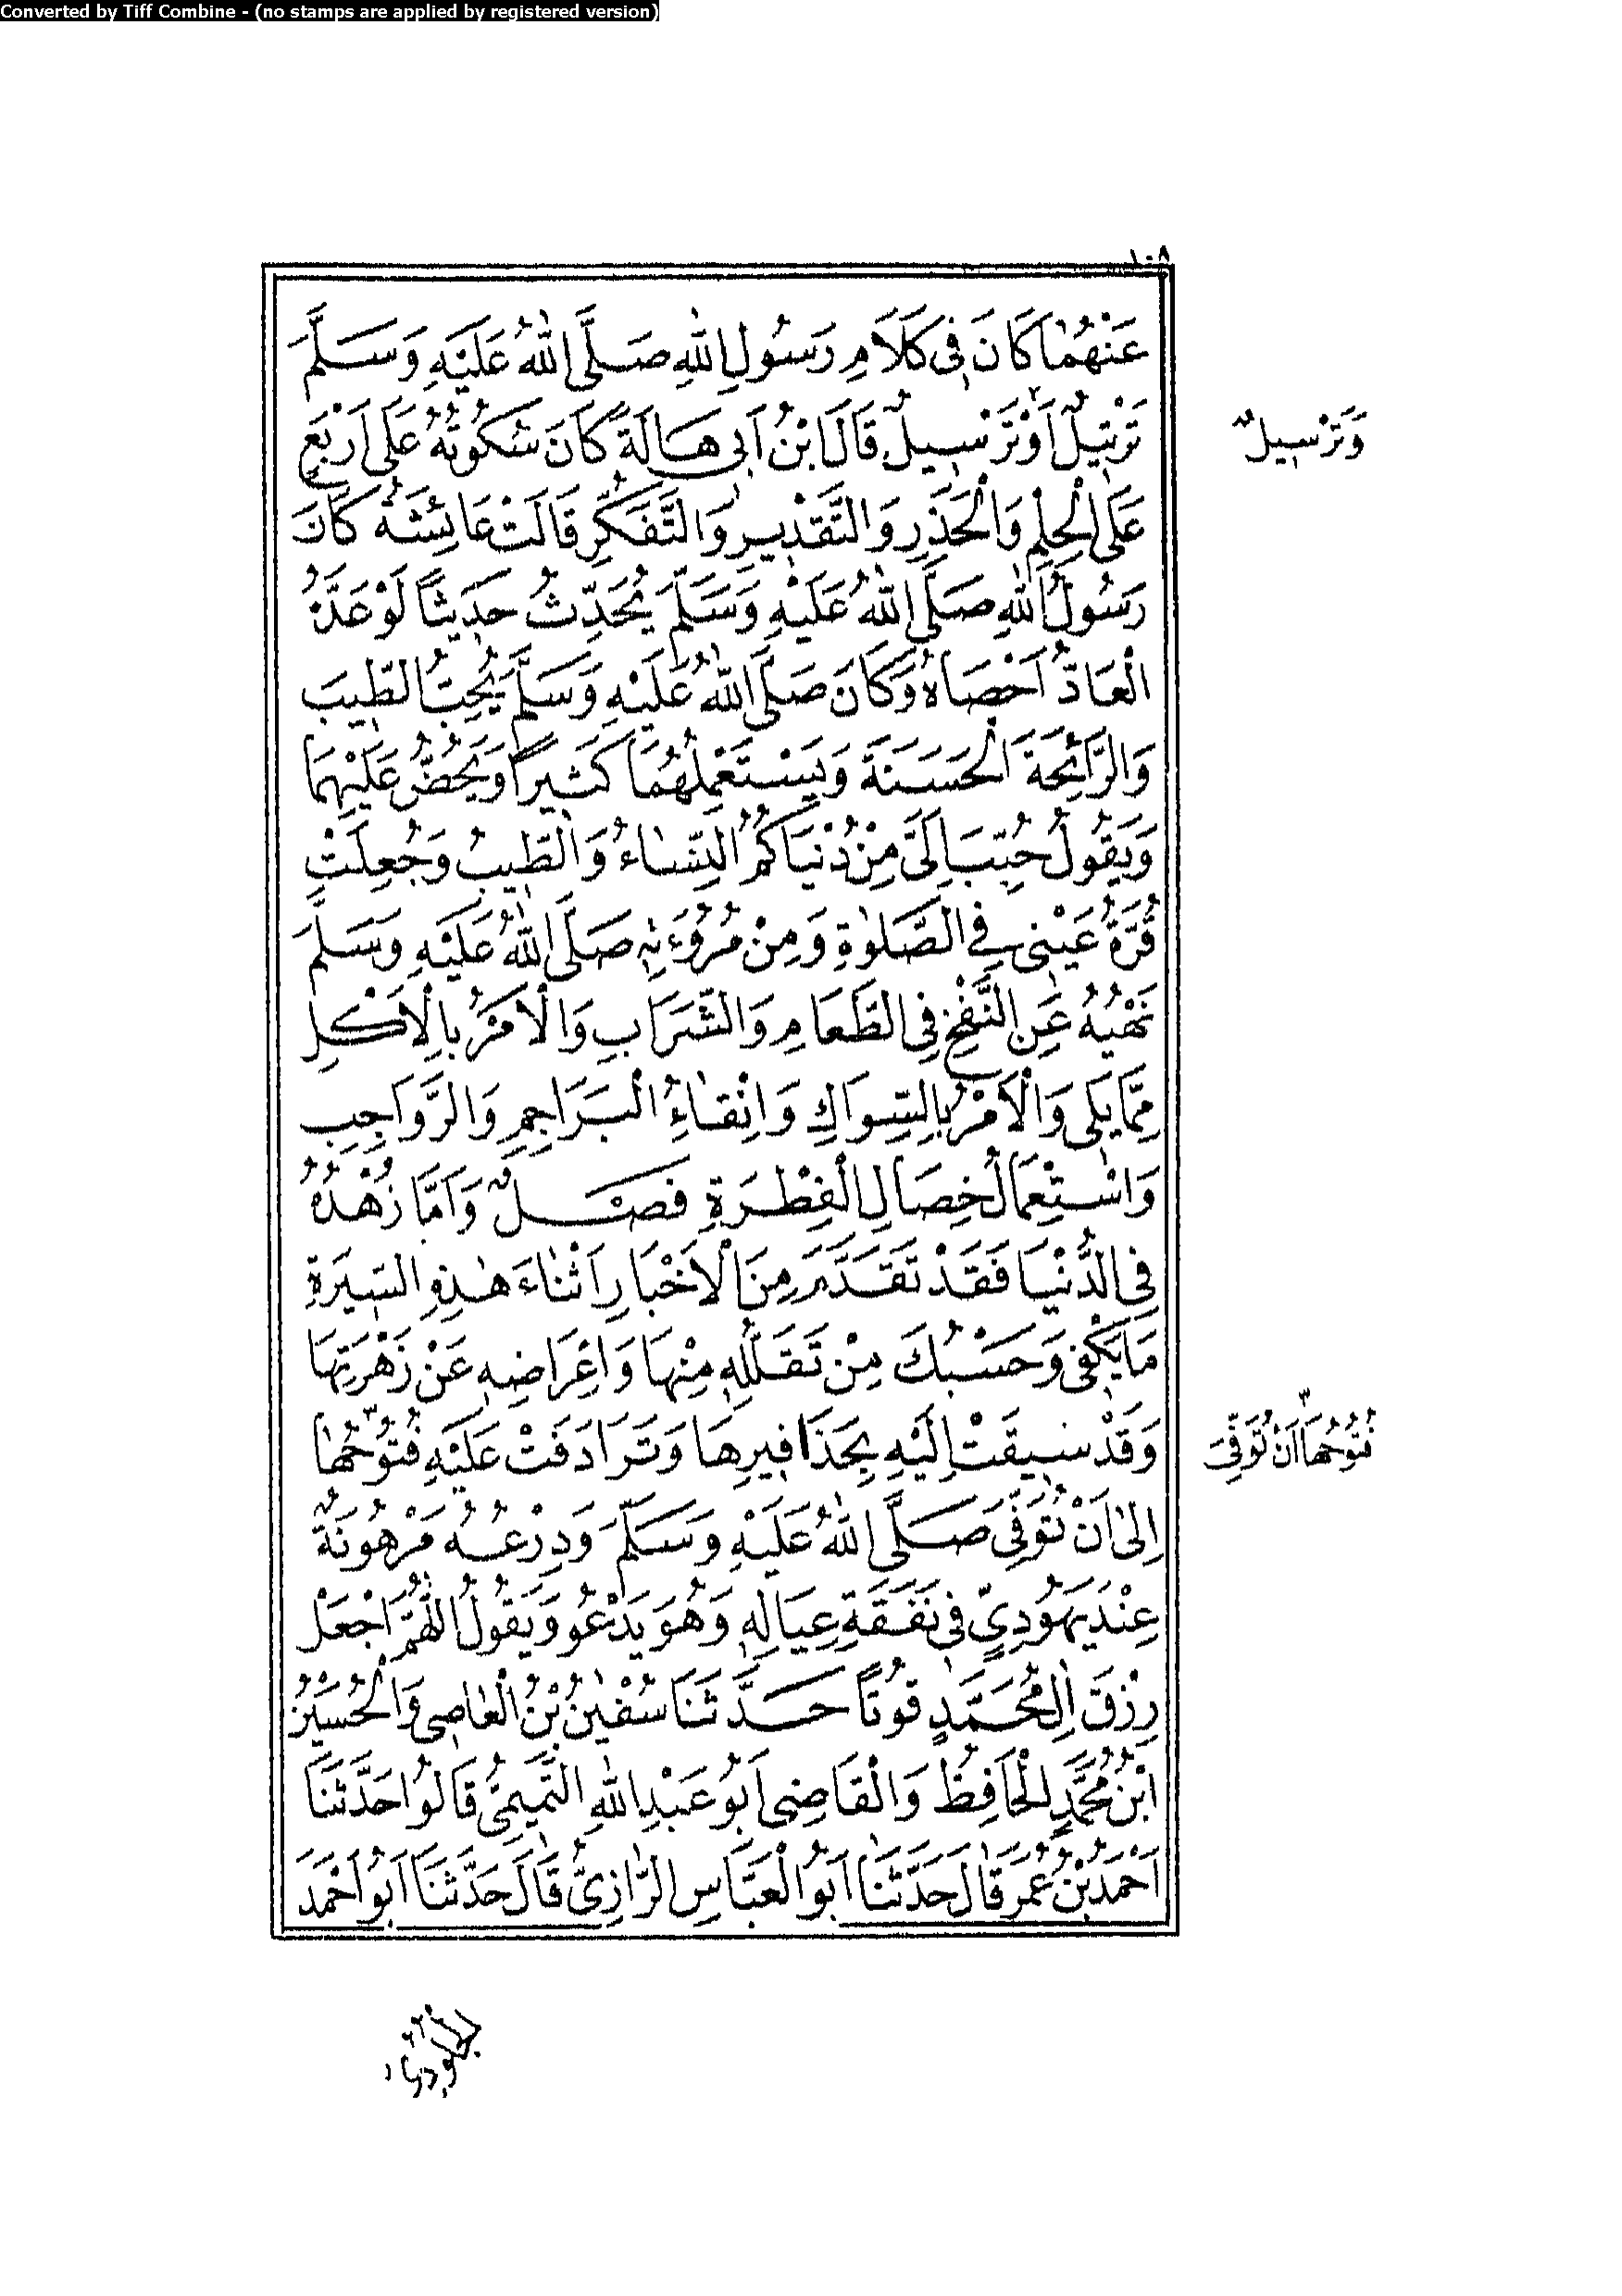 Converted by Tiff Combine - (no stamps are applied by registered version)
١٠٨
عَنْهُمَا كَانَ فِى كَلَامِ رَسُولِ اللهِ صَلَّى اللهُ عَلَيْهِ وَسَلَّمَ
تَرْتِيلٌ اَوْ تَرْسِيلٌ قَالَ ابْنُ اَبِى هَالَةَ كَانَ سُكُوتُهُ عَلَى اَرْبَعٍ
عَلَى الْحِلْمِ وَالْحَذَرِ وَالتَّقْدِيرِ وَالتَّفَكُّرِ قَالَتْ عَائِشَةُ كَانَ
رَسُولُ اللهِ صَلَّى اللهُ عَلَيْهِ وَسَلَّمَ يُحَدِّثُ حَدِيثًا لَوْ عَدَّهُ
الْعَادُّ اَحْصَاهُ وَكَانَ صَلَّى اللهُ عَلَيْهِ وَسَلَّمَ يُحِبُّ الطِّيبَ
وَالرَّائِحَةَ الْحَسَنَةَ وَيَسْتَعْمِلُهُمَا كَثِيرًا وَيَحُضُّ عَلَيْهِمَا
وَيَقُولُ حُبِّبَ اِلَىَّ مِنْ دُنْيَاكُمُ النِّسَاءُ وَالطِّيبُ وَجُعِلَتْ
قُرَّةُ عَيْنِى فِي الصَّلٰوةِ وَمِنْ مُرُوْءَتِهِ صَلَّى اللهُ عَلَيْهِ وَسَلَّمَ
نَهْيُهُ عَنِ النَّفْخِ فِى الطَّعَامِ وَالشَّرَابِ وَالْاَمْرُ بِالْاَكْلِ
مِمَّا يَلِى وَالْاَمْرُ بِالسِّوَاكِ وَاِنْقَاءُ الْبَرَاجِمِ وَالرَّوَاجِبِ
وَاسْتِعْمَالُ خِصَالِ الْفِطْرَةِ فَصْلٌ وَاَمَّا زُهْدُهُ
فِى الدُّنْيَا فَقَدْ تَقَدَّمَ مِنَ الْاَخْبَارِ اَثْنَاءَ هٰذِهِ السِّيرَةِ
مَا يَكْفِى وَحَسْبُكَ مِنْ تَقَلُّلِهِ مِنْهَا وَاِعْرَاضِهِ عَنْ زَهْرَتِهَا
وَقَدْ سِيقَتْ اِلَيْهِ بِحَذَافِيرِهَا وَتَرَادَفَتْ عَلَيْهِ فُتُوحُهَا
اِلٰى اَنْ تُوُفِّىَ صَلَّى اللهُ عَلَيْهِ وَسَلَّمَ وَدِرْعُهُ مَرْهُونَةٌ
عِنْدَ يَهُودِىٍّ فِى نَفَقَةِ عِيَالِهِ وَهُوَ يَدْعُو وَيَقُولُ اللّٰهُمَّ اجْعَلْ
رِزْقَ اٰلِ مُحَمَّدٍ قُوتًا حَدَّثَنَا سُفْيٰنُ بْنُ الْعَاصِى وَالْحُسَيْنُ
ابْنُ مُحَمَّدٍ الْحَافِظُ وَالْقَاضِى اَبُو عَبْدِ اللهِ التَّمِيمِىُّ قَالُوا حَدَّثَنَا
اَحْمَدُ بْنُ عُمَرَ قَالَ حَدَّثَنَا اَبُو الْعَبَّاسِ الرَّازِىُّ قَالَ حَدَّثَنَا اَبُو اَحْمَدَ
وَتَرْسِيلٌ
فُتُوحُهَا اَنْ تُوُفِّىَ